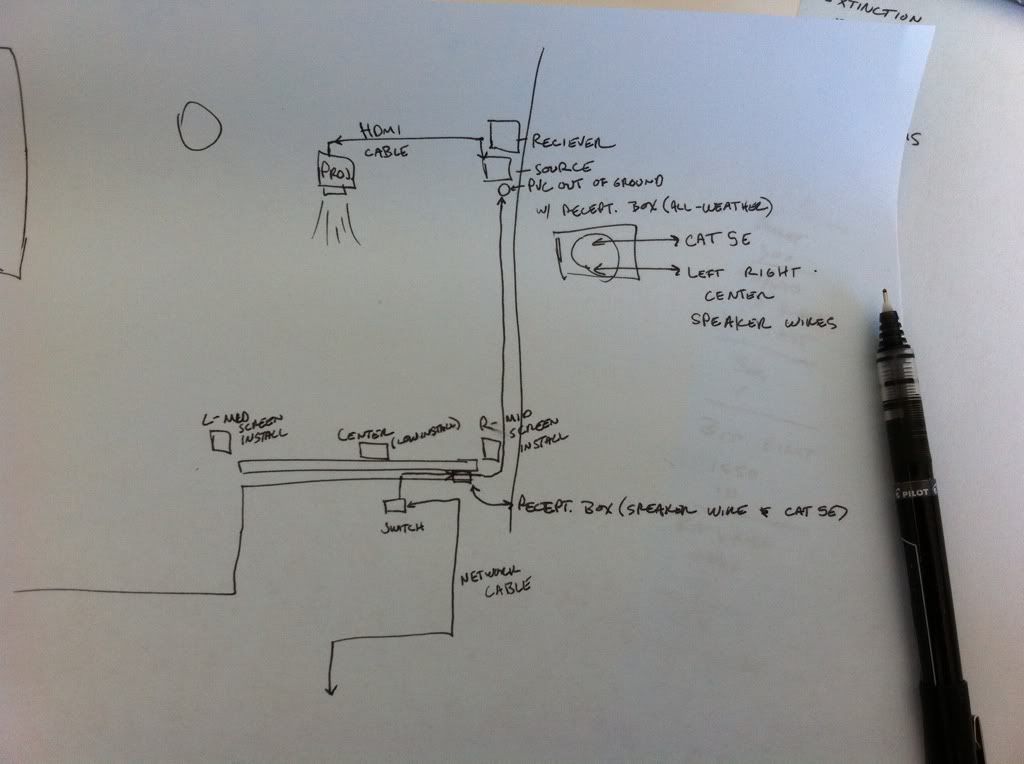 EXTINCTION
HDMI
CABLE
PROJ
RECIEVER
SOURCE
PVC OUT OF GROUND
W/ RECEPT. BOX (ALL-WEATHER)
CAT 5E
LEFT RIGHT
CENTER
SPEAKER WIRES
L-MID
SCREEN
INSTALL
CENTER (LOW INSTALL)
R-MID
SCREEN
INSTALL
SWITCH
RECEPT. BOX (SPEAKER WIRE & CAT 5E)
NETWORK
CABLE
PILOT